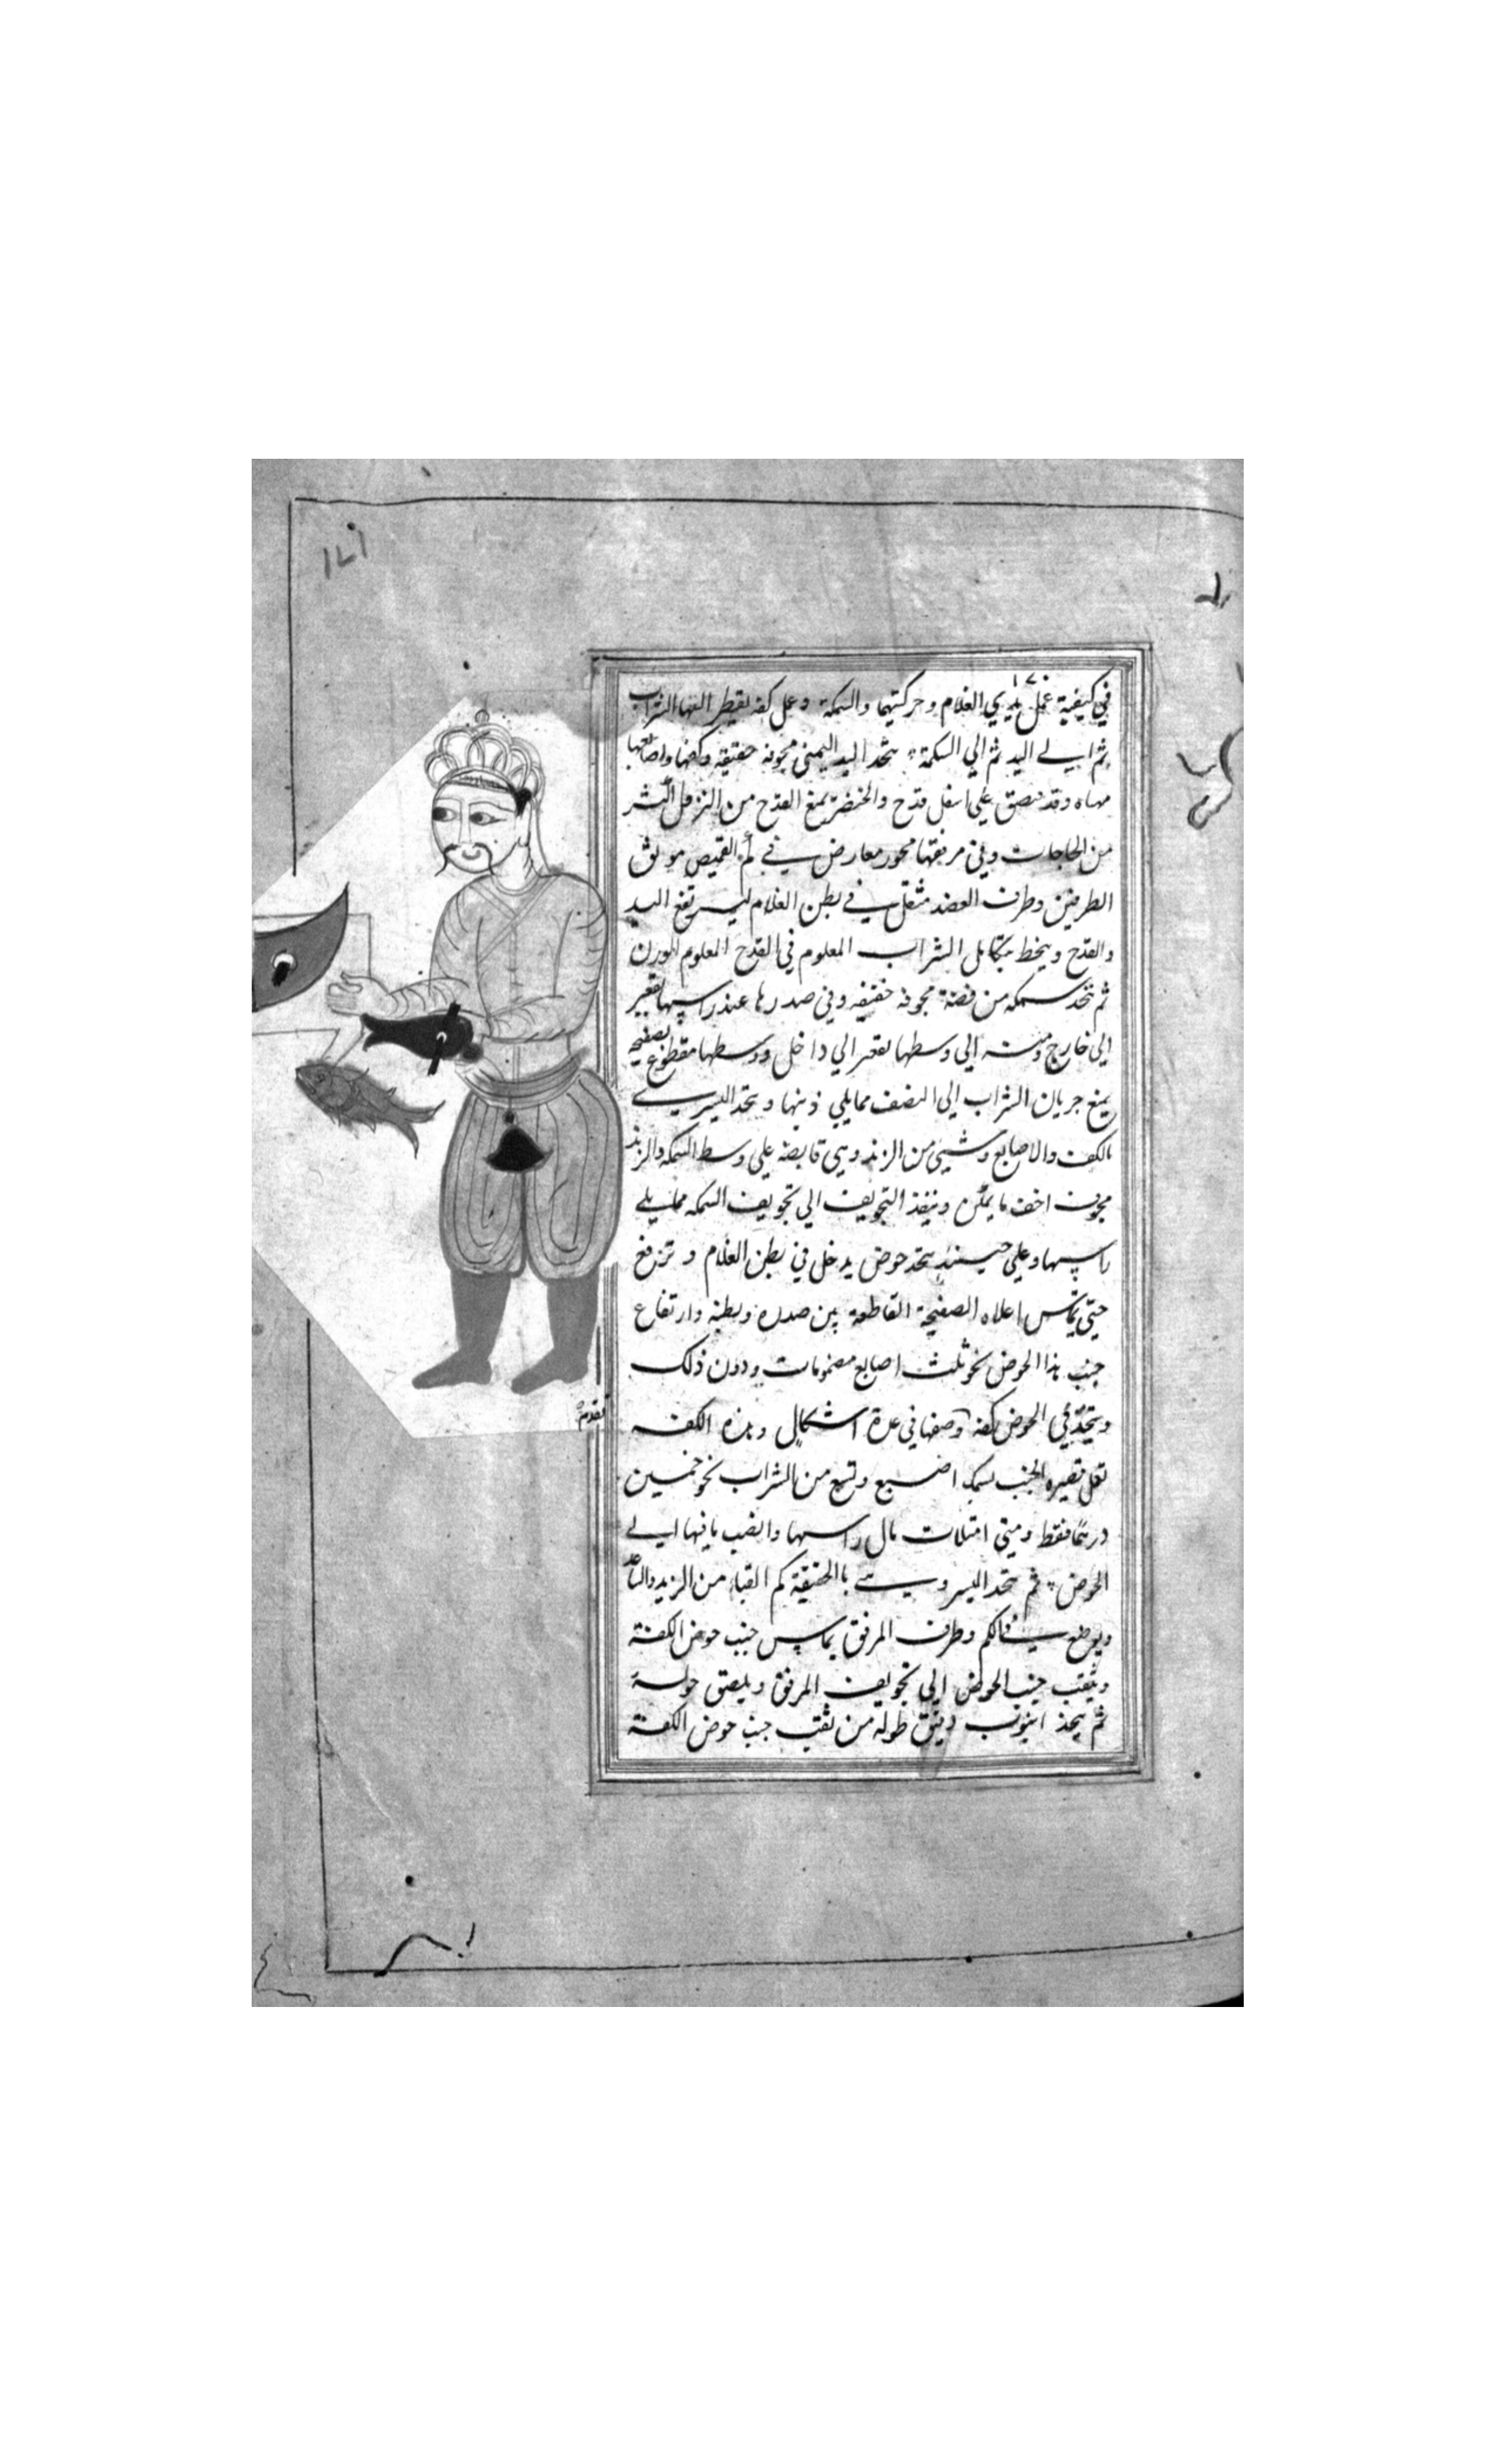 ١٧١
١٧٠
في كيفية عمل يدي الغلام وحركتهما والسمكة وعمل كفة يقطر اليها الشراب
ثم الي اليد ثم الي السمكة يتخذ اليد اليمني مجوفة خفيفة وكفها واصابعها
وقد علي اسفل قدح والخنصر يمنع القدح من النزول
من الحاجات وفي مرفقها محور معارض في كم القميص موثق
الطرفين وطرف العضد مثقل في بطن الغلام ليرتفع اليد
والقدح وينحط بتكامل الشراب المعلوم في القدح المعلوم الوزن
ثم تتخذ سمكة من فضة مجوفة خفيفة وفي صدرها عند راسها تقعير
الي خارج ومنه الي وسطها تقعير الي داخل ووسطها مقطوع بصفيحة
يمنع جريان الشراب الي النصف ممايلي ذنبها ويتخذ اليسري
الكف والاصابع وشيئ من الزند وهي قابضة علي وسط السمكة والزند
مجوف اخف ما يمكن وينفذ التجويف الي تجويف السمكة ممايلي
راسها وعلي حينئذ يتخذ حوض يدخل في بطن الغلام وترفع
حتي يماس اعلاه الصفيحة القاطعة بين صدره وبطنه وارتفاع
جنب هذا الحوض نحو ثلث اصابع مضمومات ودون ذلك
ويتخذ في الحوض كفة وصفها في عدة اشكال وهذه الكفة
قصيرة الجنب بسمك اصبع وتسع من الشراب نحو خمسين
درهما فقط ومتي امتلات مال راسها وانصب مافيها الي
الحوض ثم يتخذ كم القباء من الزند والساعد
ويوضع في الكم وطرف المرفق يماس جنب حوض الكفة
ويثقب جنب الحوض الي تجويف المرفق ويلصق حوله
ثم يتخذ انبوب دقيق طوله من ثقب جنب حوض الكفة